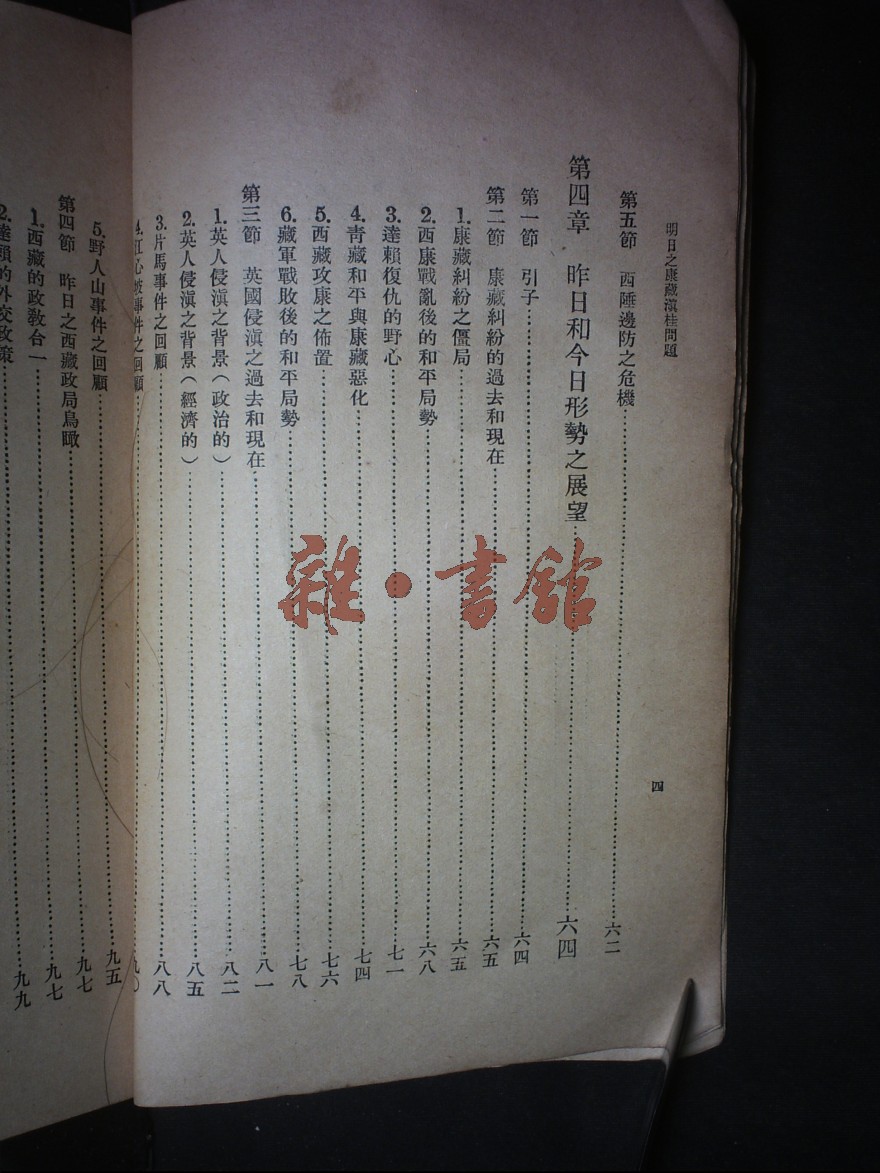 明日之康藏滇桂問題
四
第五節　西陲邊防之危機……六二
第四章　昨日和今日形勢之展望……六四
第一節　引子……六四
第二節　康藏糾紛的過去和現在……六五
1.康藏糾紛之僵局……六五
2.西康戰亂後的和平局勢……六八
3.達賴復仇的野心……七一
4.青藏和平與康藏惡化……七四
5.西藏攻康之佈置……七六
6.藏軍戰敗後的和平局勢……七八
第三節　英國侵滇之過去和現在……八一
1.英人侵滇之背景（政治的）……八二
2.英人侵滇之背景（經濟的）……八五
3.片馬事件之回顧……八八
4.江心坡事件之回顧……九〇
5.野人山事件之回顧……九五
第四節　昨日之西藏政局鳥瞰……九七
1.西藏的政教合一……九七
2.達賴的外交政策……九九
雜·書館